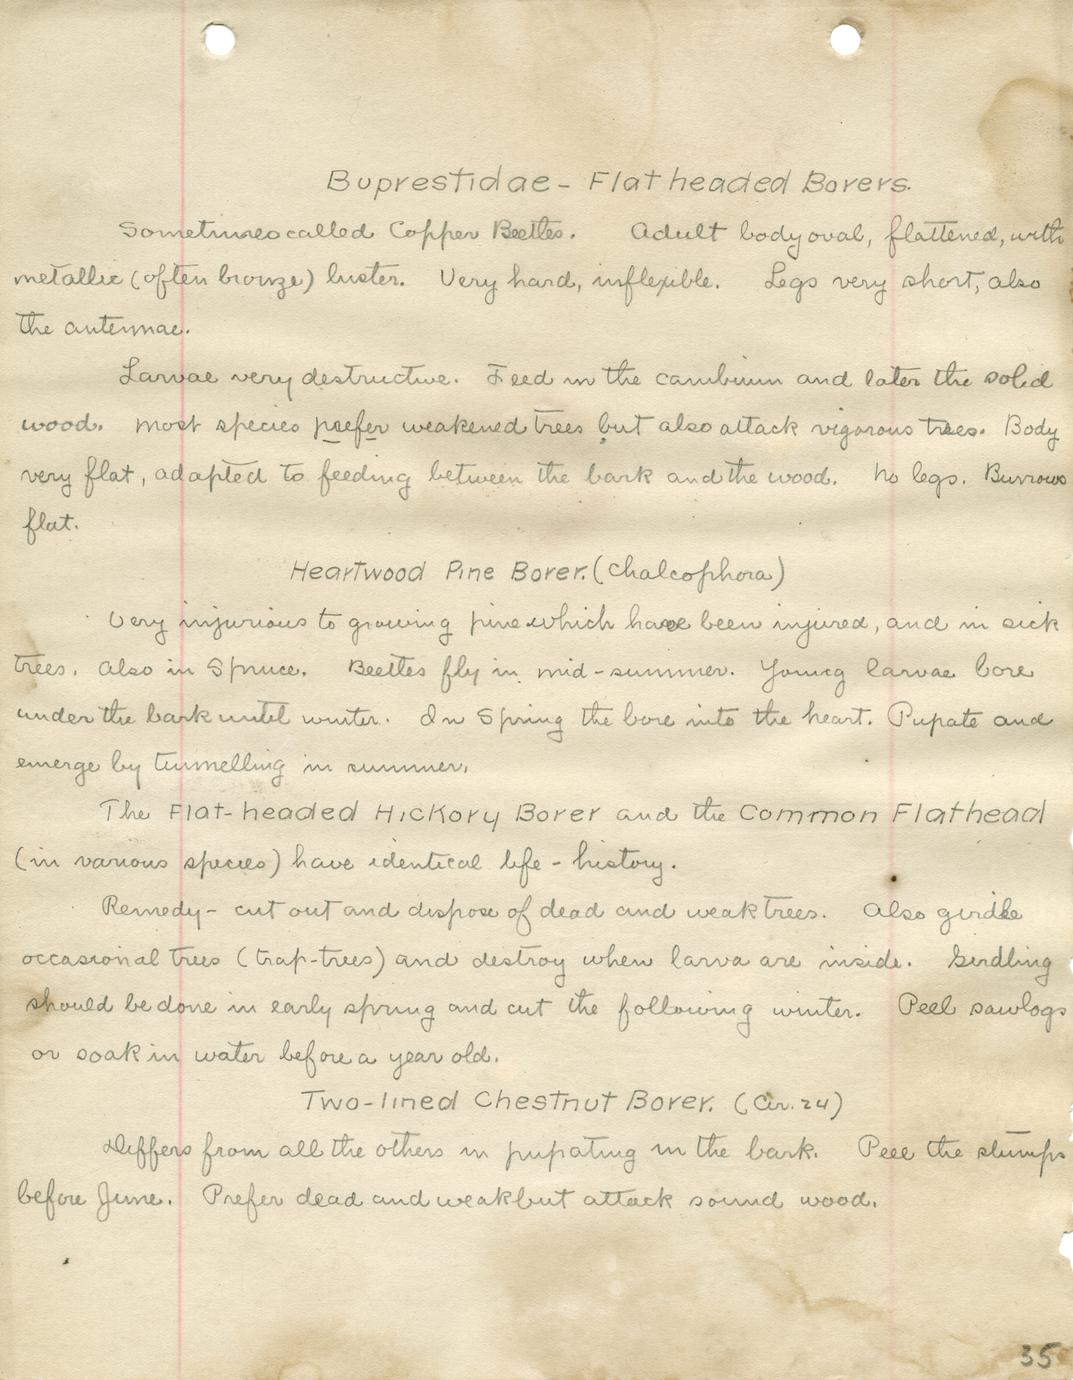 Buprestidae - Flatheaded Borers.
Sometimes called Copper Beetles. Adult body oval, flattened, with
metallic (often bronze) luster. Very hard, inflexible. Legs very short, also
the antennae.
Larvae very destructive. Feed in the cambium and later the solid
wood. Most species prefer weakened trees but also attack vigorous trees. Body
very flat, adapted to feeding between the bark and the wood. No legs. Burrows
flat.
Heartwood Pine Borer. (Chalcophora)
Very injurious to growing pine which have been injured, and in sick
trees. Also in Spruce. Beetles fly in mid-summer. Young larvae bore
under the bark until winter. In Spring the bore into the heart. Pupate and
emerge by tunnelling in summer.
The Flat-headed Hickory Borer and the Common Flathead
(in various species) have identical life-history.
Remedy - cut out and dispose of dead and weak trees. Also girdle
occasional trees (trap-trees) and destroy when larva are inside. Girdling
should be done in early spring and cut the following winter. Peel sawlogs
or soak in water before a year old.
Two-lined Chestnut Borer. (Cir. 24)
Differs from all the others in pupating in the bark. Peel the stumps
before June. Prefer dead and weak but attack sound wood.
35